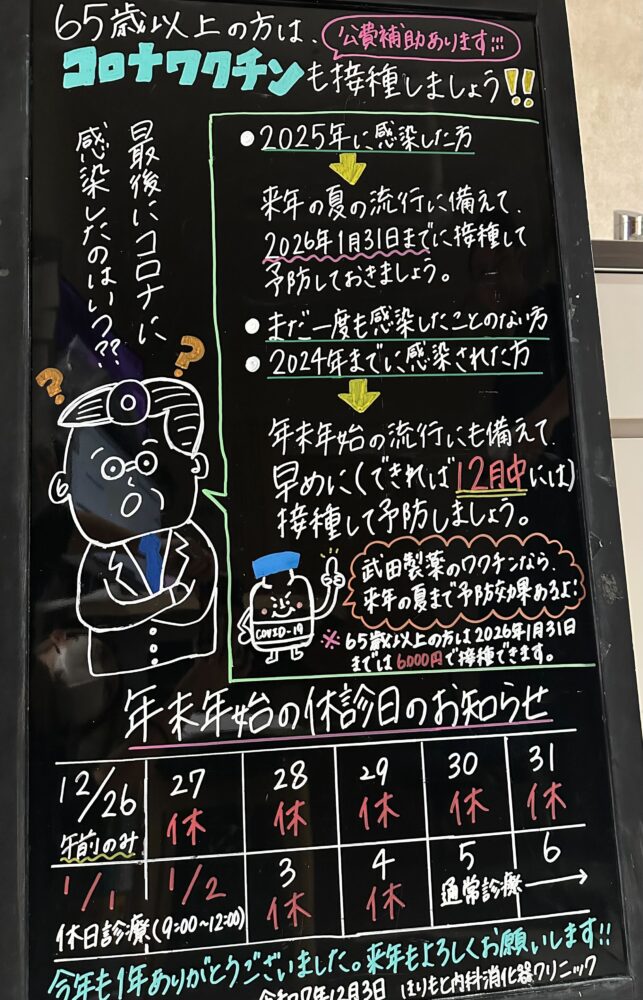 65歳以上の方は、
公費補助あります!!!
コロナワクチンも接種しましょう!!
最後にコロナに
感染したのはいつ??
? ?
● 2025年に感染した方
来年の夏の流行に備えて、
2026年1月31日までに接種して
予防しておきましょう。
● まだ一度も感染したことのない方
● 2024年までに感染された方
年末年始の流行にも備えて、
早めに(できれば12月中には)
接種して予防しましょう。
COVID-19
武田製薬のワクチンなら、
来年の夏まで予防効果あるよ!
※ 65歳以上の方は2026年1月31日
までは6,000円で接種できます。
年末年始の休診日のお知らせ
12/26 27 28 29 30 31
午前のみ 休 休 休 休 休
1/1 1/2 3 4 5 6
休日診療(9:00~12:00) 休 休 通常診療→
今年も1年ありがとうございました。来年もよろしくお願いします!!
令和7年12月3日 ほりもと内科消化器クリニック